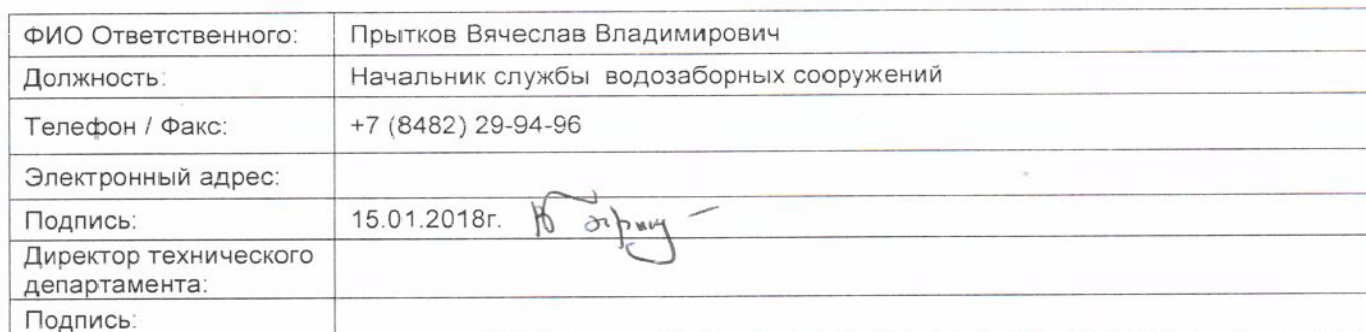 ФИО Ответственного: Прытков Вячеслав Владимирович
Должность: Начальник службы водозаборных сооружений
Телефон / Факс: +7 (8482) 29-94-96
Электронный адрес:
Подпись: 15.01.2018г.
Директор технического
департамента:
Подпись: